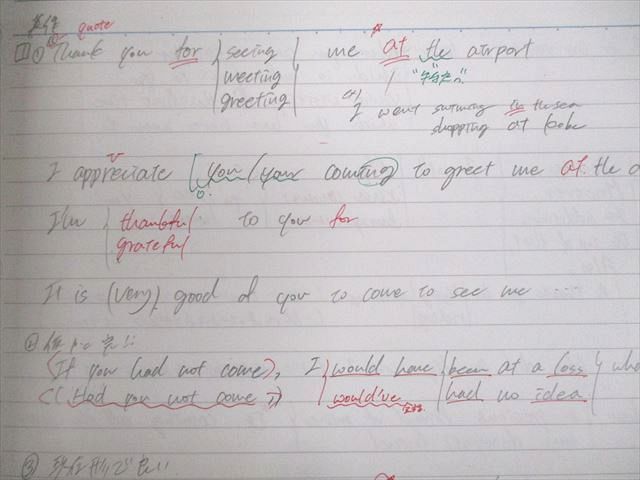 quote
① Thank you for seeing me at the airport
meeting
greeting
I went swimming in the sea
shopping at Kobe
I appreciate you (your coming to greet me at the a
I'm thankful to you for
grateful
It is (very) good of you to come to see me ...
②
(If you had not come), I would have been at a loss wh
(Had you not come,) would've had no idea
③ 現在形で良い!!